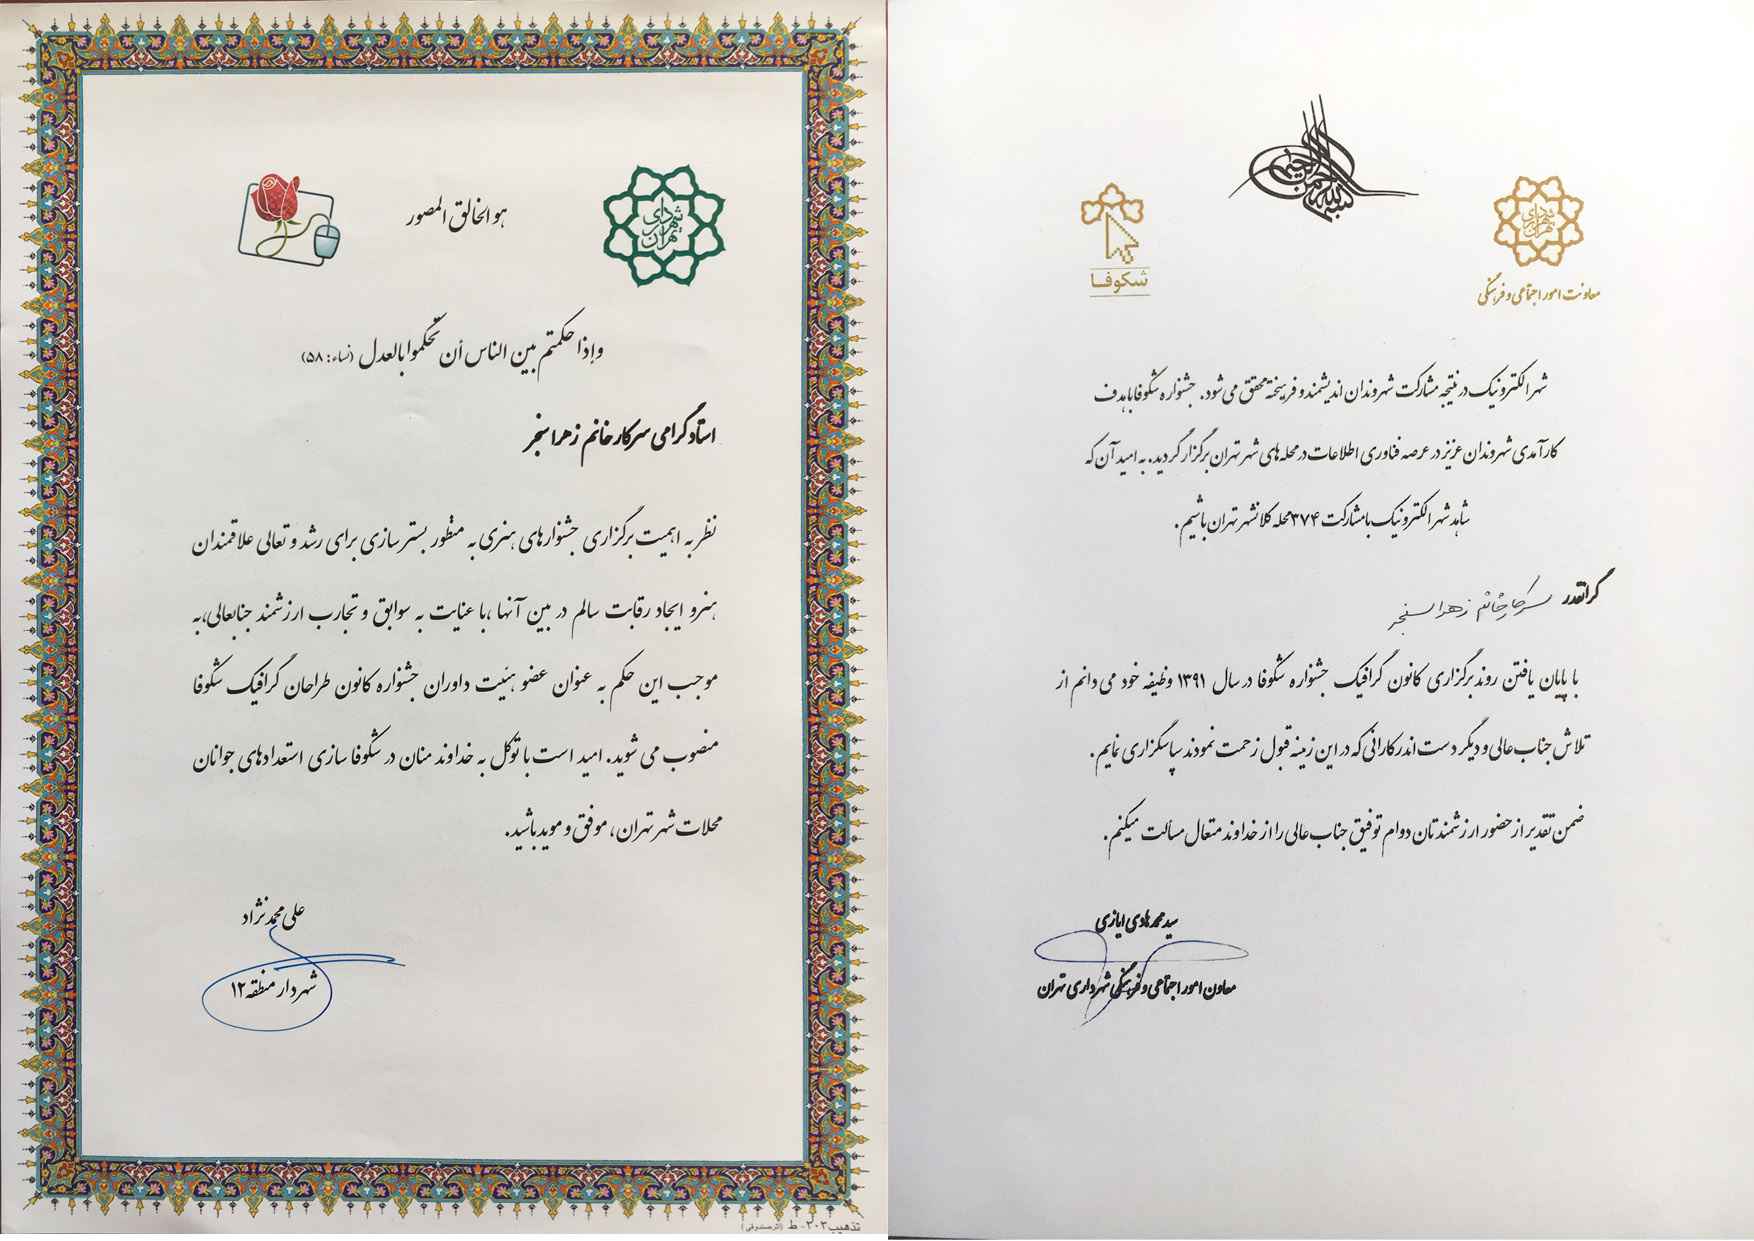 هو الخالق المصور
شهرداری
تهران
وإذا حکمتم بین الناس أن تحکموا بالعدل (نساء: ۵۸)
استاد گرامی سرکار خانم زهرا سنجر
نظر به اهمیت برگزاری جشنوارهای هنری به منظور بسترسازی برای رشد و تعالی علاقمندان
هنر و ایجاد رقابت سالم در بین آنها ،با عنایت به سوابق و تجارب ارزشمند جنابعالی،به
موجب این حکم به عنوان عضو هئیت داوران جشنواره کانون طراحان گرافیک شکوفا
منصوب می شوید. امید است با توکل به خداوند منان در شکوفا سازی استعدادهای جوانان
محلات شهر تهران، موفق و موید باشید.
علی محمد نژاد
شهردار منطقه ۱۲
تذهیب ۳۰۲- ط (اثر صندوقی)
بسم الله الرحمن الرحیم
شهرداری
تهران
معاونت امور اجتماعی و فرهنگی
شکوفا
شهر الکترونیک در نتیجه مشارکت شهروندان اندیشمند و فرهیخته محقق می شود. جشنواره شکوفا با هدف
کارآمدی شهروندان عزیز در عرصه فناوری اطلاعات در محله های شهر تهران برگزار گردید. به امید آن که
شاهد شهر الکترونیک با مشارکت ۳۷۴ محله کلانشهر تهران باشیم.
گرانقدر سرکار خانم زهرا سنجر
با پایان یافتن روند برگزاری کانون گرافیک جشنواره شکوفا در سال ۱۳۹۱ وظیفه خود می دانم از
تلاش جناب عالی و دیگر دست اندرکارانی که در این زمینه قبول زحمت نمودند سپاسگزاری نمایم.
ضمن تقدیر از حضور ارزشمندتان دوام توفیق جناب عالی را از خداوند متعال مسألت میکنم.
سید محمد هادی ایازی
معاون امور اجتماعی و فرهنگی شهرداری تهران